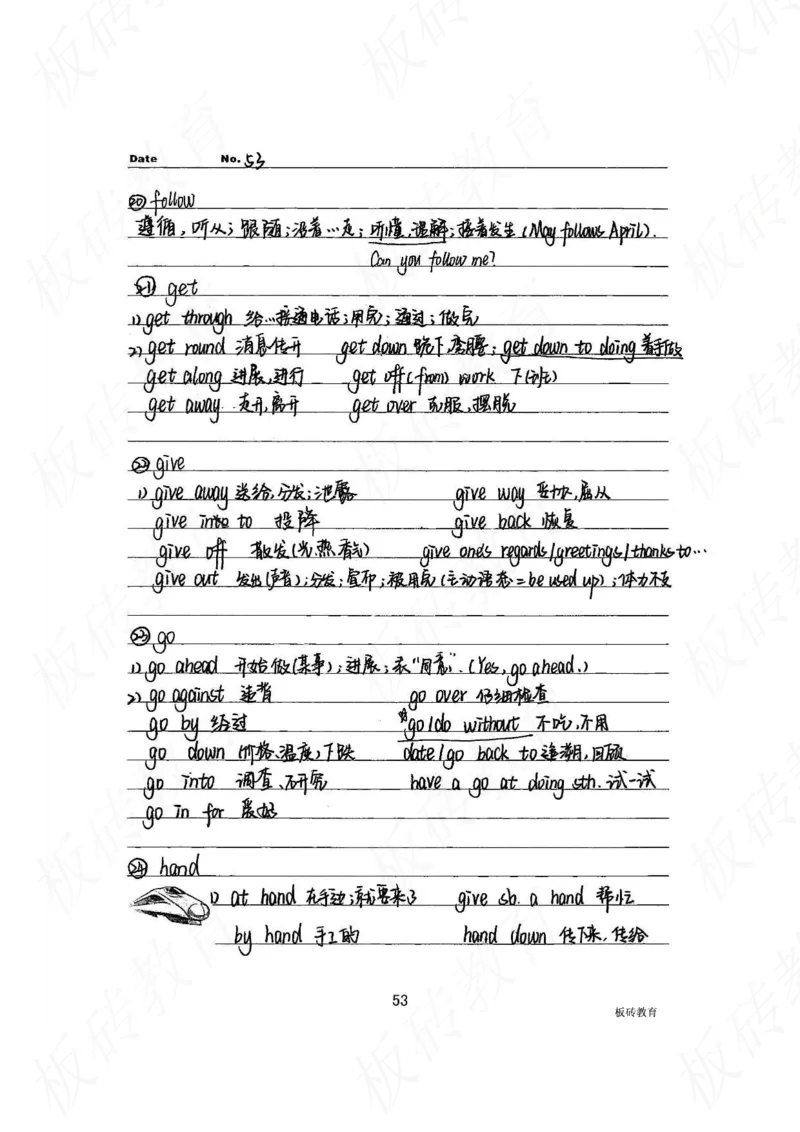 Date No. 53
⑳ follow
遵循，听从；跟随；沿着…走；听懂，理解；接着发生（May follows April）.
Can you follow me?
㉑ get
1) get through 给…接通电话；用完；通过；做完
2) get round 消息传开 get down 跪下，弯腰；get down to doing 着手做
get along 进展，进行 get off (from) work 下(班)
get away 走开，离开 get over 克服，摆脱
㉒ give
1) give away 送给，分发；泄露 give way 妥协，屈从
give into to 投降 give back 恢复
give off 散发(光，热，香气) give one's regards/greetings/thanks to…
give out 发出(声音)；分发；宣布；被用完(主动语态=be used up)；体力不支
㉓ go
1) go ahead 开始做(某事)；进展；表“同意”. (Yes, go ahead.)
2) go against 违背 go over 仔细检查
go by 经过 go/do without 不吃，不用
go down (价格、温度)下跌 date/go back to 追溯，回顾
go into 调查、研究 have a go at doing sth. 试一试
go in for 爱好
㉔ hand
1) at hand 在手边；就要来了 give sb. a hand 帮忙
by hand 手工的 hand down 传下来，传给
53
板砖教育